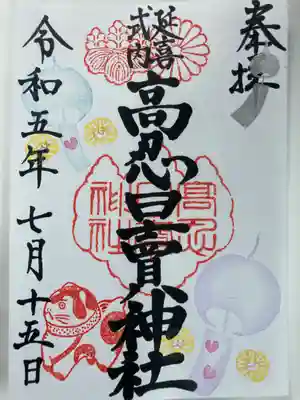 奉拝
延喜
式内
高忍日賣神社
高忍
日賣
神社
令和五年七月十五日